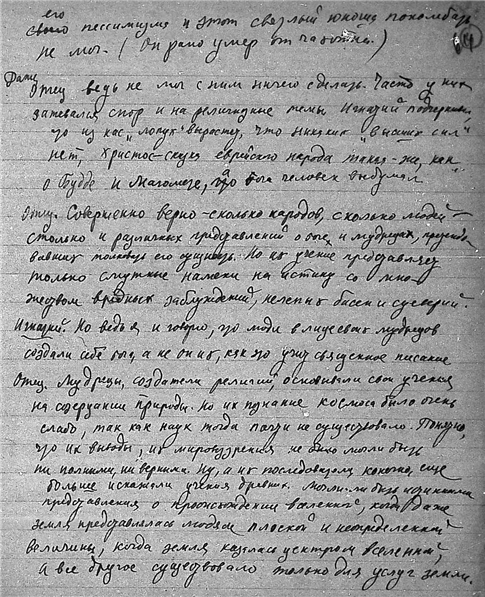 его
своего пессимизма и этот светлый юноша поколебать
не мог. (Он рано умер от чахотки.)
Даже
Отец ведь не мог с ним ничего сделать. Часто у них
затевался спор и на религиозные темы. Игнатий
что из нас "лопух" вырастет, что никаких "высших сил"
нет, Христос-сказка еврейского народа такая-же, как
о Будде и Магомете, что бога человек выдумал
Отец. Совершенно верно - сколько народов, сколько людей -
столько и различных представлений о боге, и мудрецах,
его сущность. Но их учение представляет
только смутные намеки на истину со мно-
жеством вредных заблуждений, нелепых басен и суеверий.
Игнатий. Но ведь я и говорю, что люди в лице своих мудрецов
создали себе бога, а не он их, как это учит священное писание
Отец. Мудрецы, создатели религий, основывали свои учения
на созерцании природы. Но их познание космоса было очень
слабо, так как наук тогда почти не существовало. Понятно,
что их выводы, их мировоззрения не могли быть
ни полными, ни верными. Ну, а их последователи, конечно, еще
больше исказили учения древних. Могли ли быть истинными
представления о происхождении вселенной, когда даже
земля представлялась людям плоской и неопределенной
величины, когда земля казалась центром вселенной,
а все другое существовало только для услуг земли.